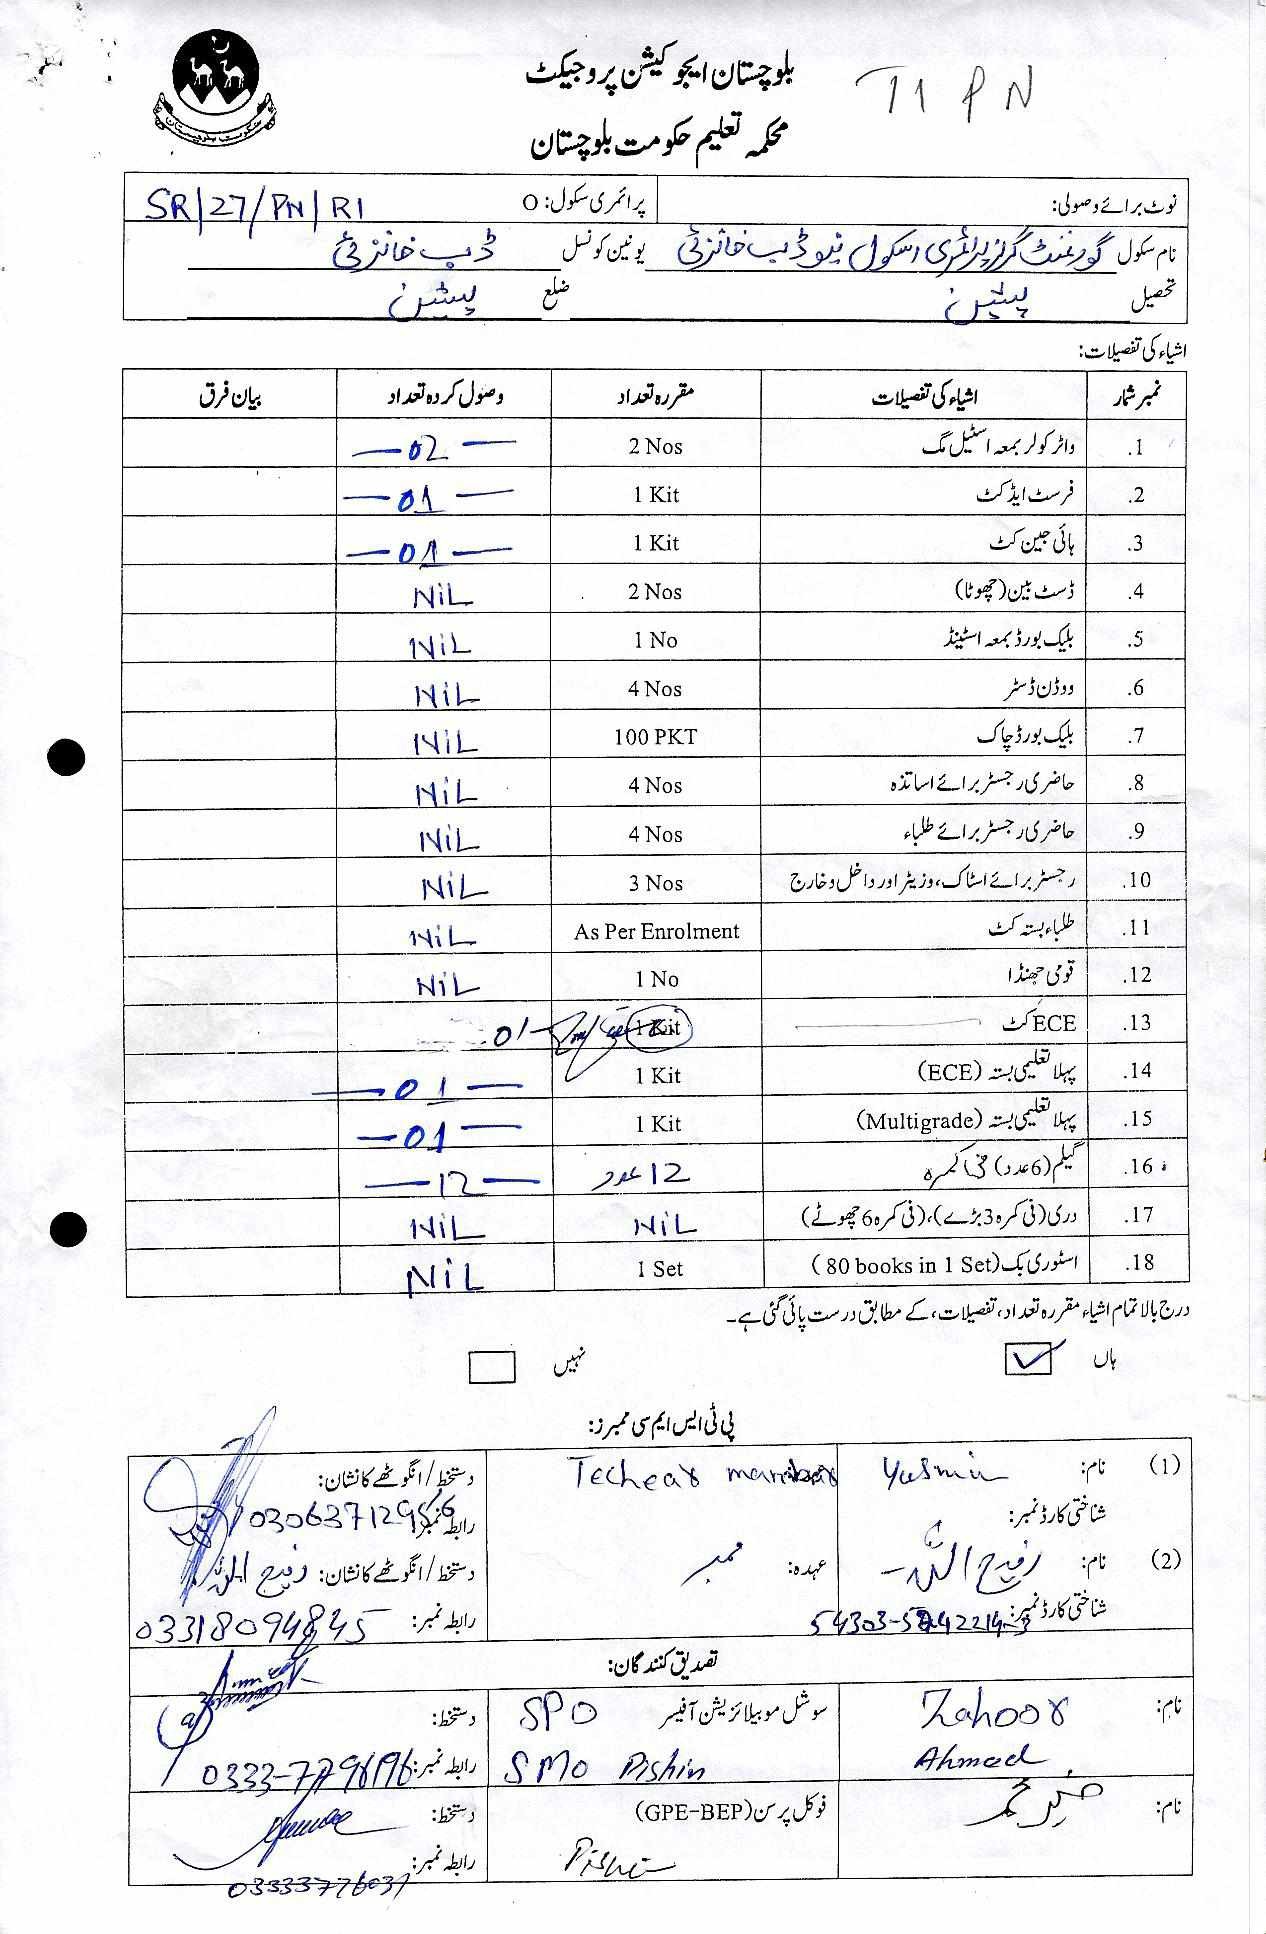 بلوچستان ایجوکیشن پروجیکٹ
T1 PN
محکمہ تعلیم حکومت بلوچستان
حکومت بلوچستان
نوٹ برائے وصولی: پرائمری سکول: O SR/27/PN/R1
نام سکول گورنمنٹ گرلز پرائمری اسکول نیو ڈب خانزئی یونین کونسل ڈب خانزئی
تحصیل پشین ضلع پشین
اشیاء کی تفصیلات:
نمبر شمار اشیاء کی تفصیلات مقررہ تعداد وصول کردہ تعداد بیان فرق
.1 واٹر کولر بمعہ اسٹیل مگ 2 Nos —02—
.2 فرسٹ ایڈ کٹ 1 Kit —01—
.3 ہائی جین کٹ 1 Kit —01—
.4 ڈسٹ بین (چھوٹا) 2 Nos NiL
.5 بلیک بورڈ بمعہ اسٹینڈ 1 No NiL
.6 ووڈن ڈسٹر 4 Nos NiL
.7 بلیک بورڈ چاک 100 PKT NiL
.8 حاضری رجسٹر برائے اساتذہ 4 Nos NiL
.9 حاضری رجسٹر برائے طلباء 4 Nos NiL
.10 رجسٹر برائے اسٹاک، وزیٹر اور داخل و خارج 3 Nos NiL
.11 طلباء بستہ کٹ As Per Enrolment NiL
.12 قومی جھنڈا 1 No NiL
.13 ECE کٹ 1 Kit 01—
.14 پہلا تعلیمی بستہ (ECE) 1 Kit —01—
.15 پہلا تعلیمی بستہ (Multigrade) 1 Kit —01—
.16 گیلم (6 عدد) فی کمرہ 12 عدد —12—
.17 دری (فی کمرہ 3 بڑے)، (فی کمرہ 6 چھوٹے) NiL NiL
.18 اسٹوری بک (80 books in 1 Set) 1 Set NiL
درج بالا تمام اشیاء مقررہ تعداد، تفصیلات، کے مطابق درست پائی گئی ہے۔
ہاں ✓ نہیں
پی ٹی ایس ایم سی ممبرز:
(1) نام: Yasmin Techear دستخط / انگوٹھے کا نشان:
شناختی کارڈ نمبر: رابطہ نمبر:
(2) نام: رفیع اللہ عہدہ: ممبر دستخط / انگوٹھے کا نشان: رفیع اللہ
شناختی کارڈ نمبر: رابطہ نمبر: 03318094845
تصدیق کنندگان:
نام: Zahoor سوشل موبیلائزیشن آفیسر SPO دستخط:
Ahmed SMO Pishin رابطہ نمبر:
نام: فوکل پرسن (GPE-BEP) دستخط:
Pishin رابطہ نمبر: